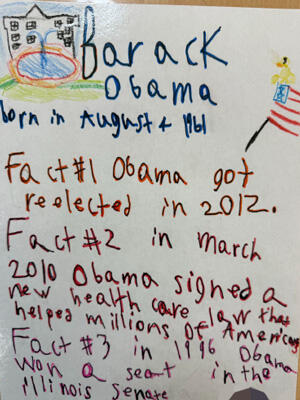 Barack
Obama
born in August 4 1961
Fact #1 Obama got
reelected in 2012.
Fact #2 in march
2010 Obama signed a
new health care law that
helped millions of Americans
Fact #3 in 1996 Obama
won a seat in the
illinois senate